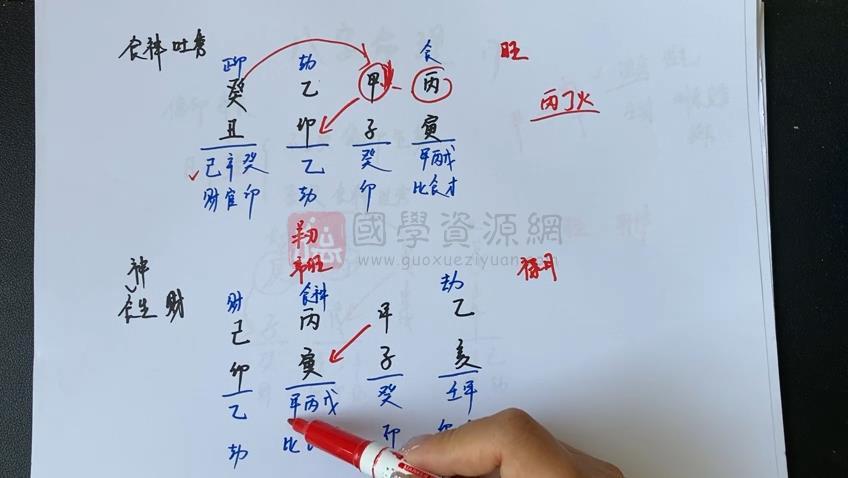 食神吐秀 正印 劫 食 旺
癸 乙 甲 丙 丙丁火
丑 卯 子 寅
己辛癸 乙 癸 甲丙戊
财官印 劫 印 比食才
國學資源網
www.guoxueziyuan.com
羊刃
帝旺 禄月
神 食神 劫
食生财 财 丙 甲 乙
己 寅 子 亥
卯 甲丙戊 癸 壬甲
乙 比 印
劫